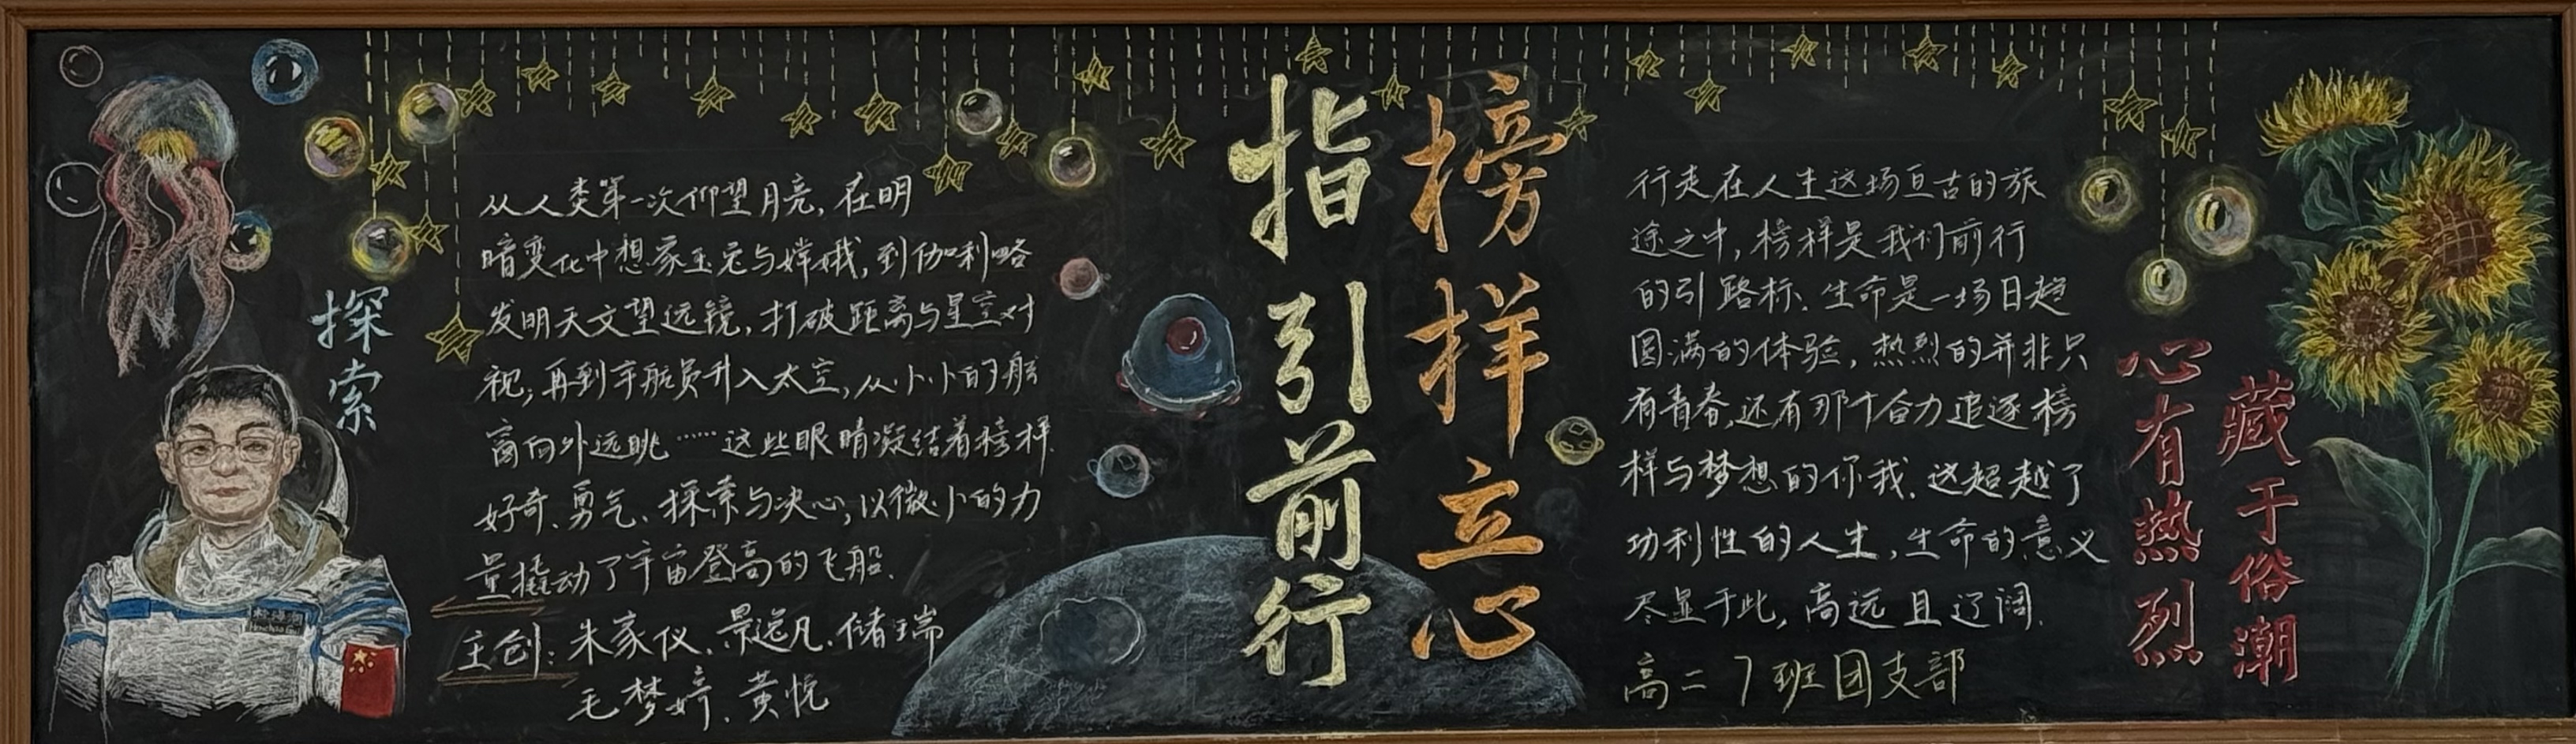 探索
从人类第一次仰望月亮,在明
暗变化中想象玉兔与嫦娥,到伽利略
发明天文望远镜,打破距离与星空对
视;再到宇航员升入太空,从小小的舷
窗向外远眺……这些眼睛凝结着榜样.
好奇、勇气、探索与决心,以微小的力
量撬动了宇宙登高的飞船.
主创:朱家仪、景逸凡、储瑞
毛梦婷、黄悦
榜样立心
指引前行
行走在人生这场亘古的旅
途之中,榜样是我们前行
的引路标、生命是一场日趋
圆满的体验,热烈的并非只
有青春,还有那个合力追逐榜
样与梦想的你我、这超越了
功利性的人生,生命的意义
尽显于此,高远且辽阔.
高二7班团支部
藏于俗潮
心有热烈